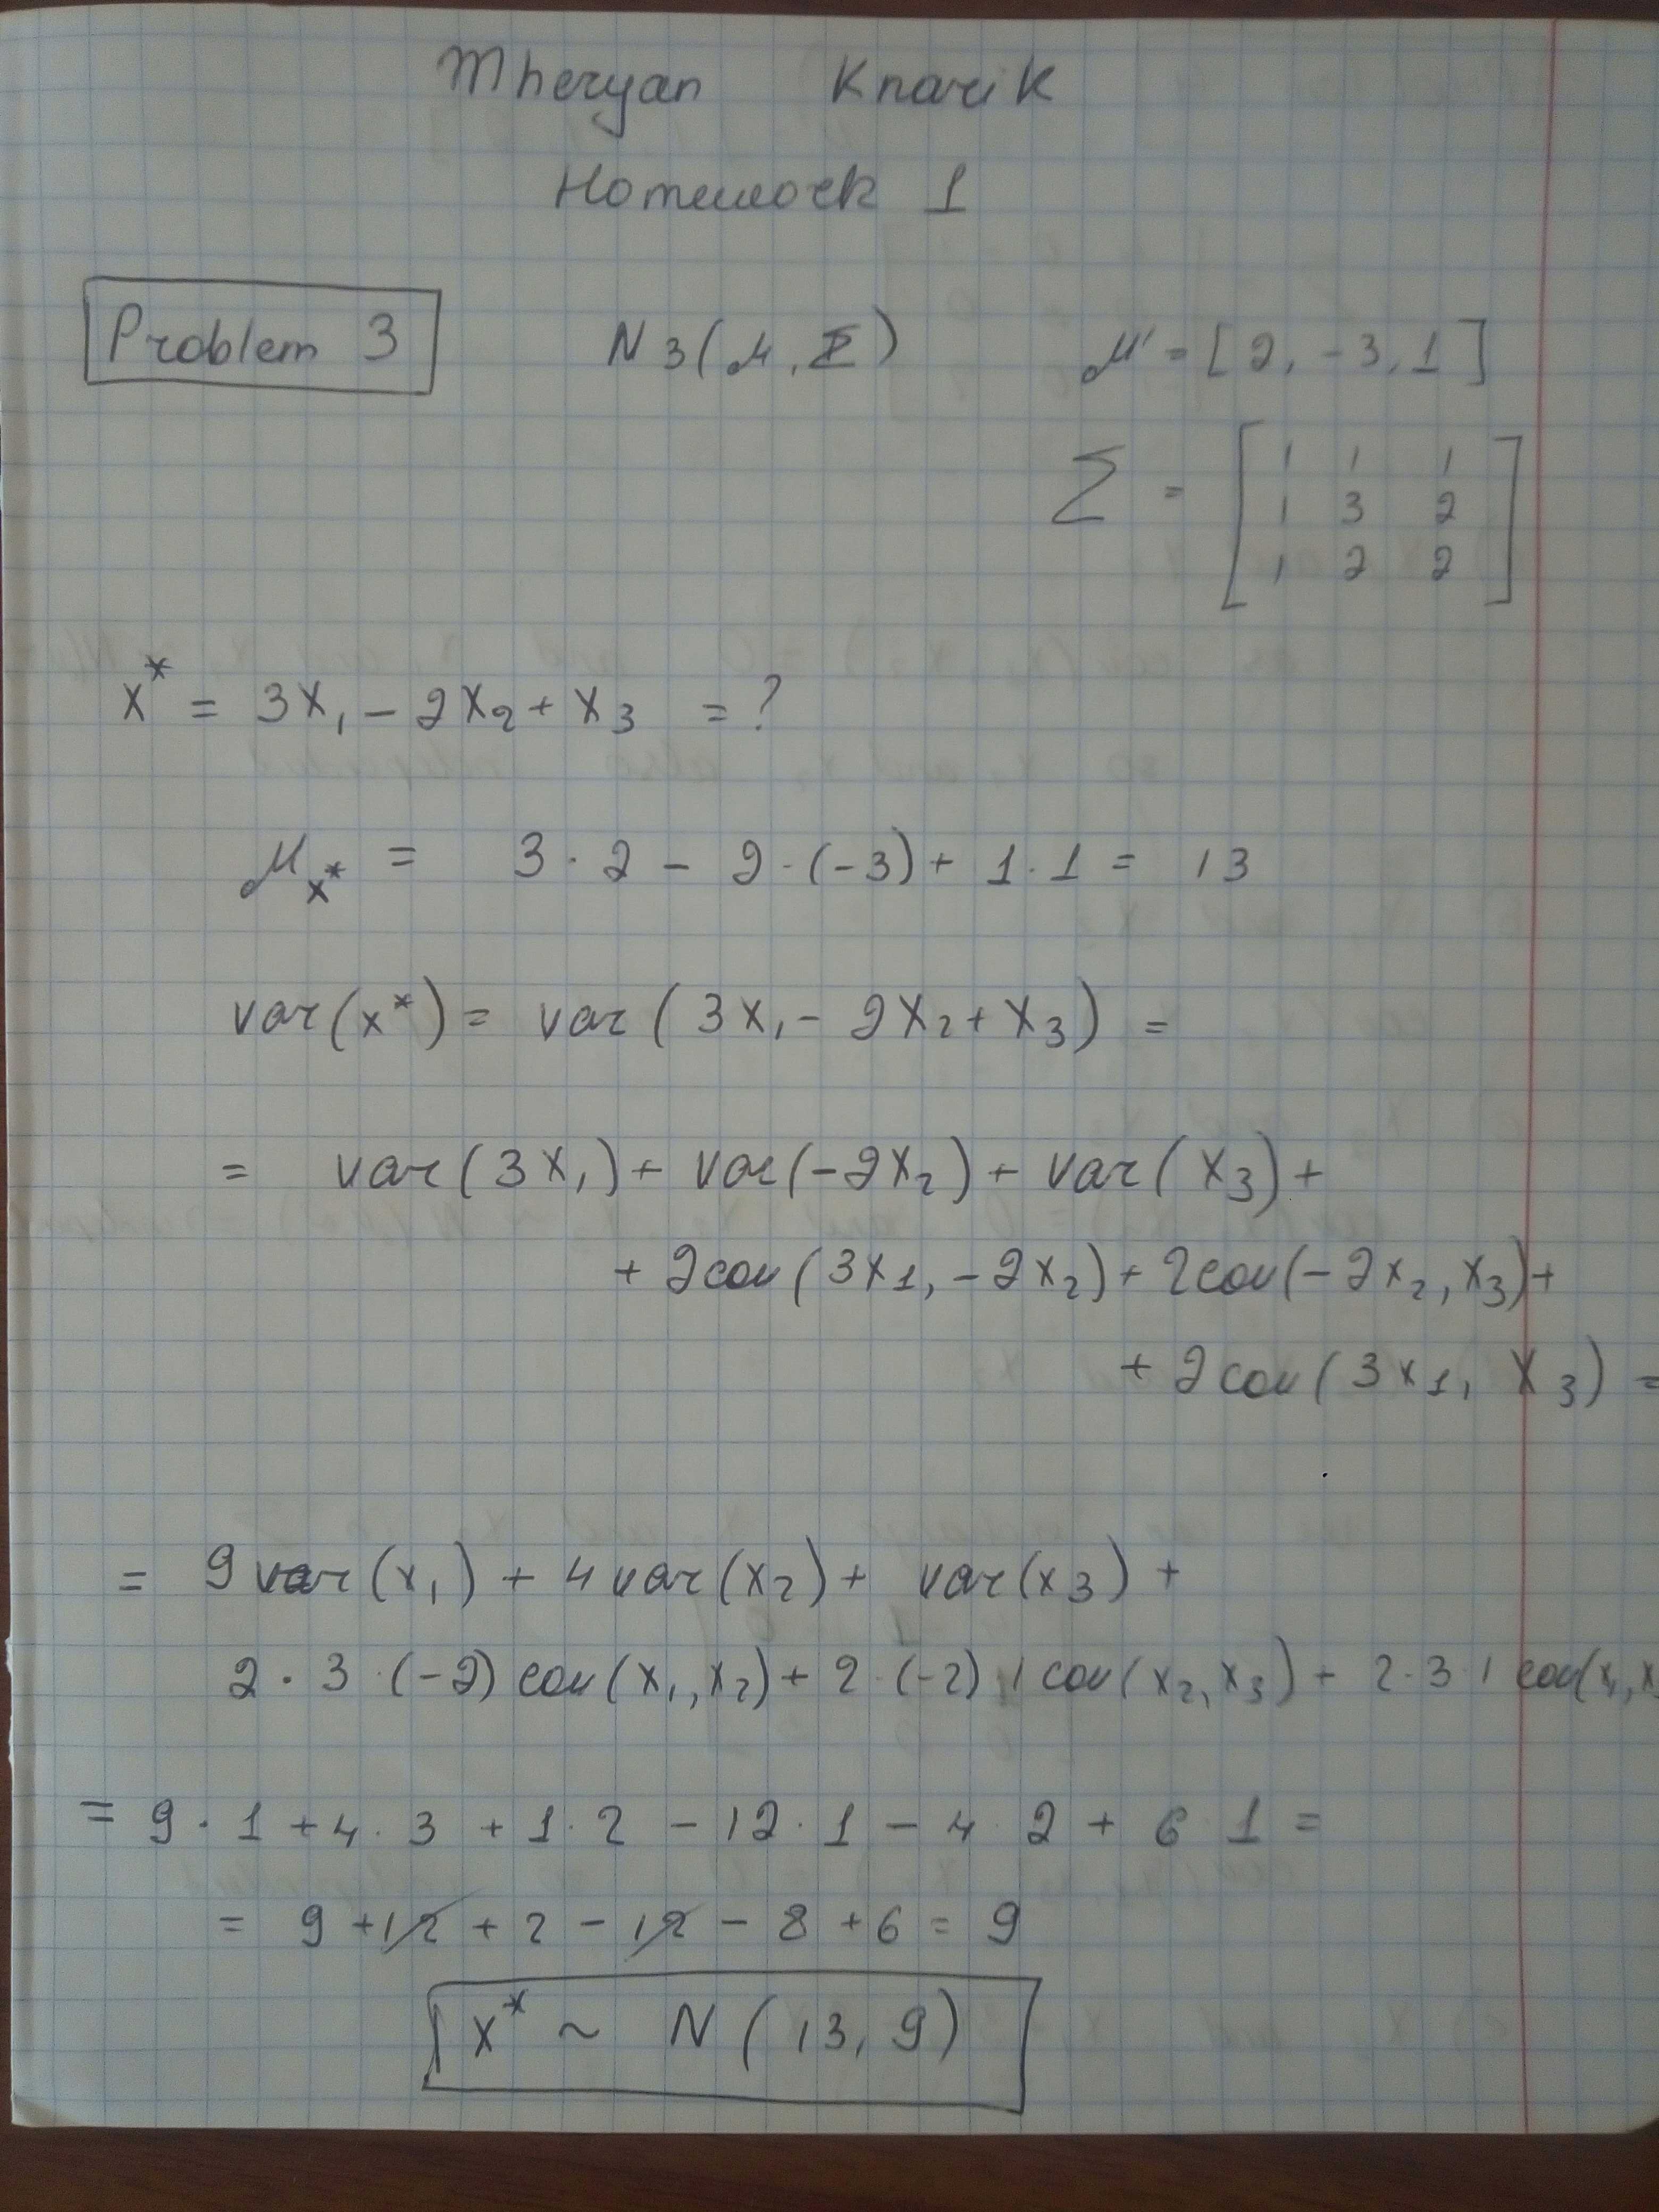 Mheryan Knarik
Homework 1
Problem 3 N3(μ, Σ) μ' = [2, -3, 1]
Σ = [1 1 1
1 3 2
1 2 2]
x* = 3x₁ - 2x₂ + x₃ = ?
μx* = 3 · 2 - 2 · (-3) + 1 · 1 = 13
var(x*) = var(3x₁ - 2x₂ + x₃) =
= var(3x₁) + var(-2x₂) + var(x₃) +
+ 2cov(3x₁, -2x₂) + 2cov(-2x₂, x₃) +
+ 2cov(3x₁, x₃) =
= 9var(x₁) + 4var(x₂) + var(x₃) +
2 · 3 · (-2) cov(x₁, x₂) + 2 · (-2) · 1 cov(x₂, x₃) + 2 · 3 · 1 cov(x₁, x
= 9 · 1 + 4 · 3 + 1 · 2 - 12 · 1 - 4 · 2 + 6 · 1 =
= 9 + 12 + 2 - 12 - 8 + 6 = 9
x* ~ N(13, 9)